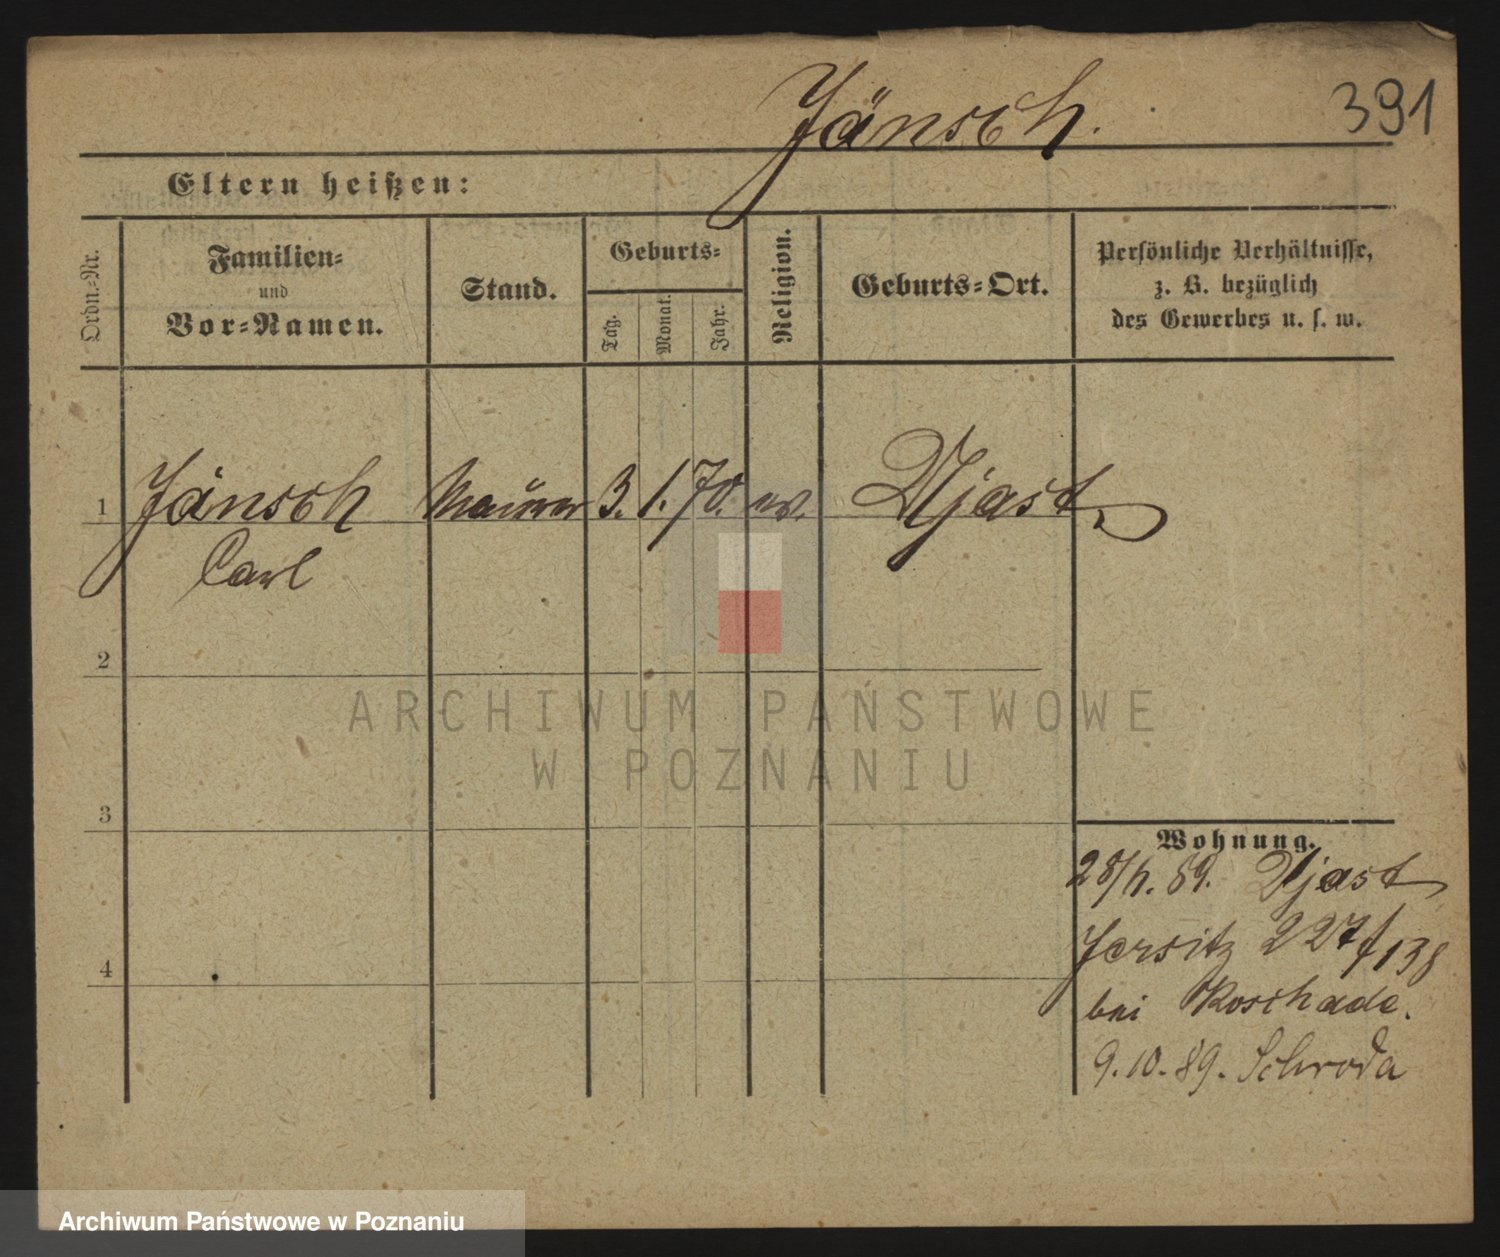 Jänsch.
391
Eltern heißen:
Ordn.-Nr.
Familien-
und
Vor-Namen.
Stand.
Geburts-
Tag.
Monat.
Jahr.
Religion.
Geburts-Ort.
Persönliche Verhältnisse,
z. B. bezüglich
des Gewerbes u. s. w.
1 Jänsch Maurer 3. 1. 70. ev. Ujast
Carl
2
3
4
ARCHIWUM PAŃSTWOWE
W POZNANIU
Wohnung.
89. Ujast
Jersitz 227/138
bei Roschade.
9.10.89. Schroda
Archiwum Państwowe w Poznaniu